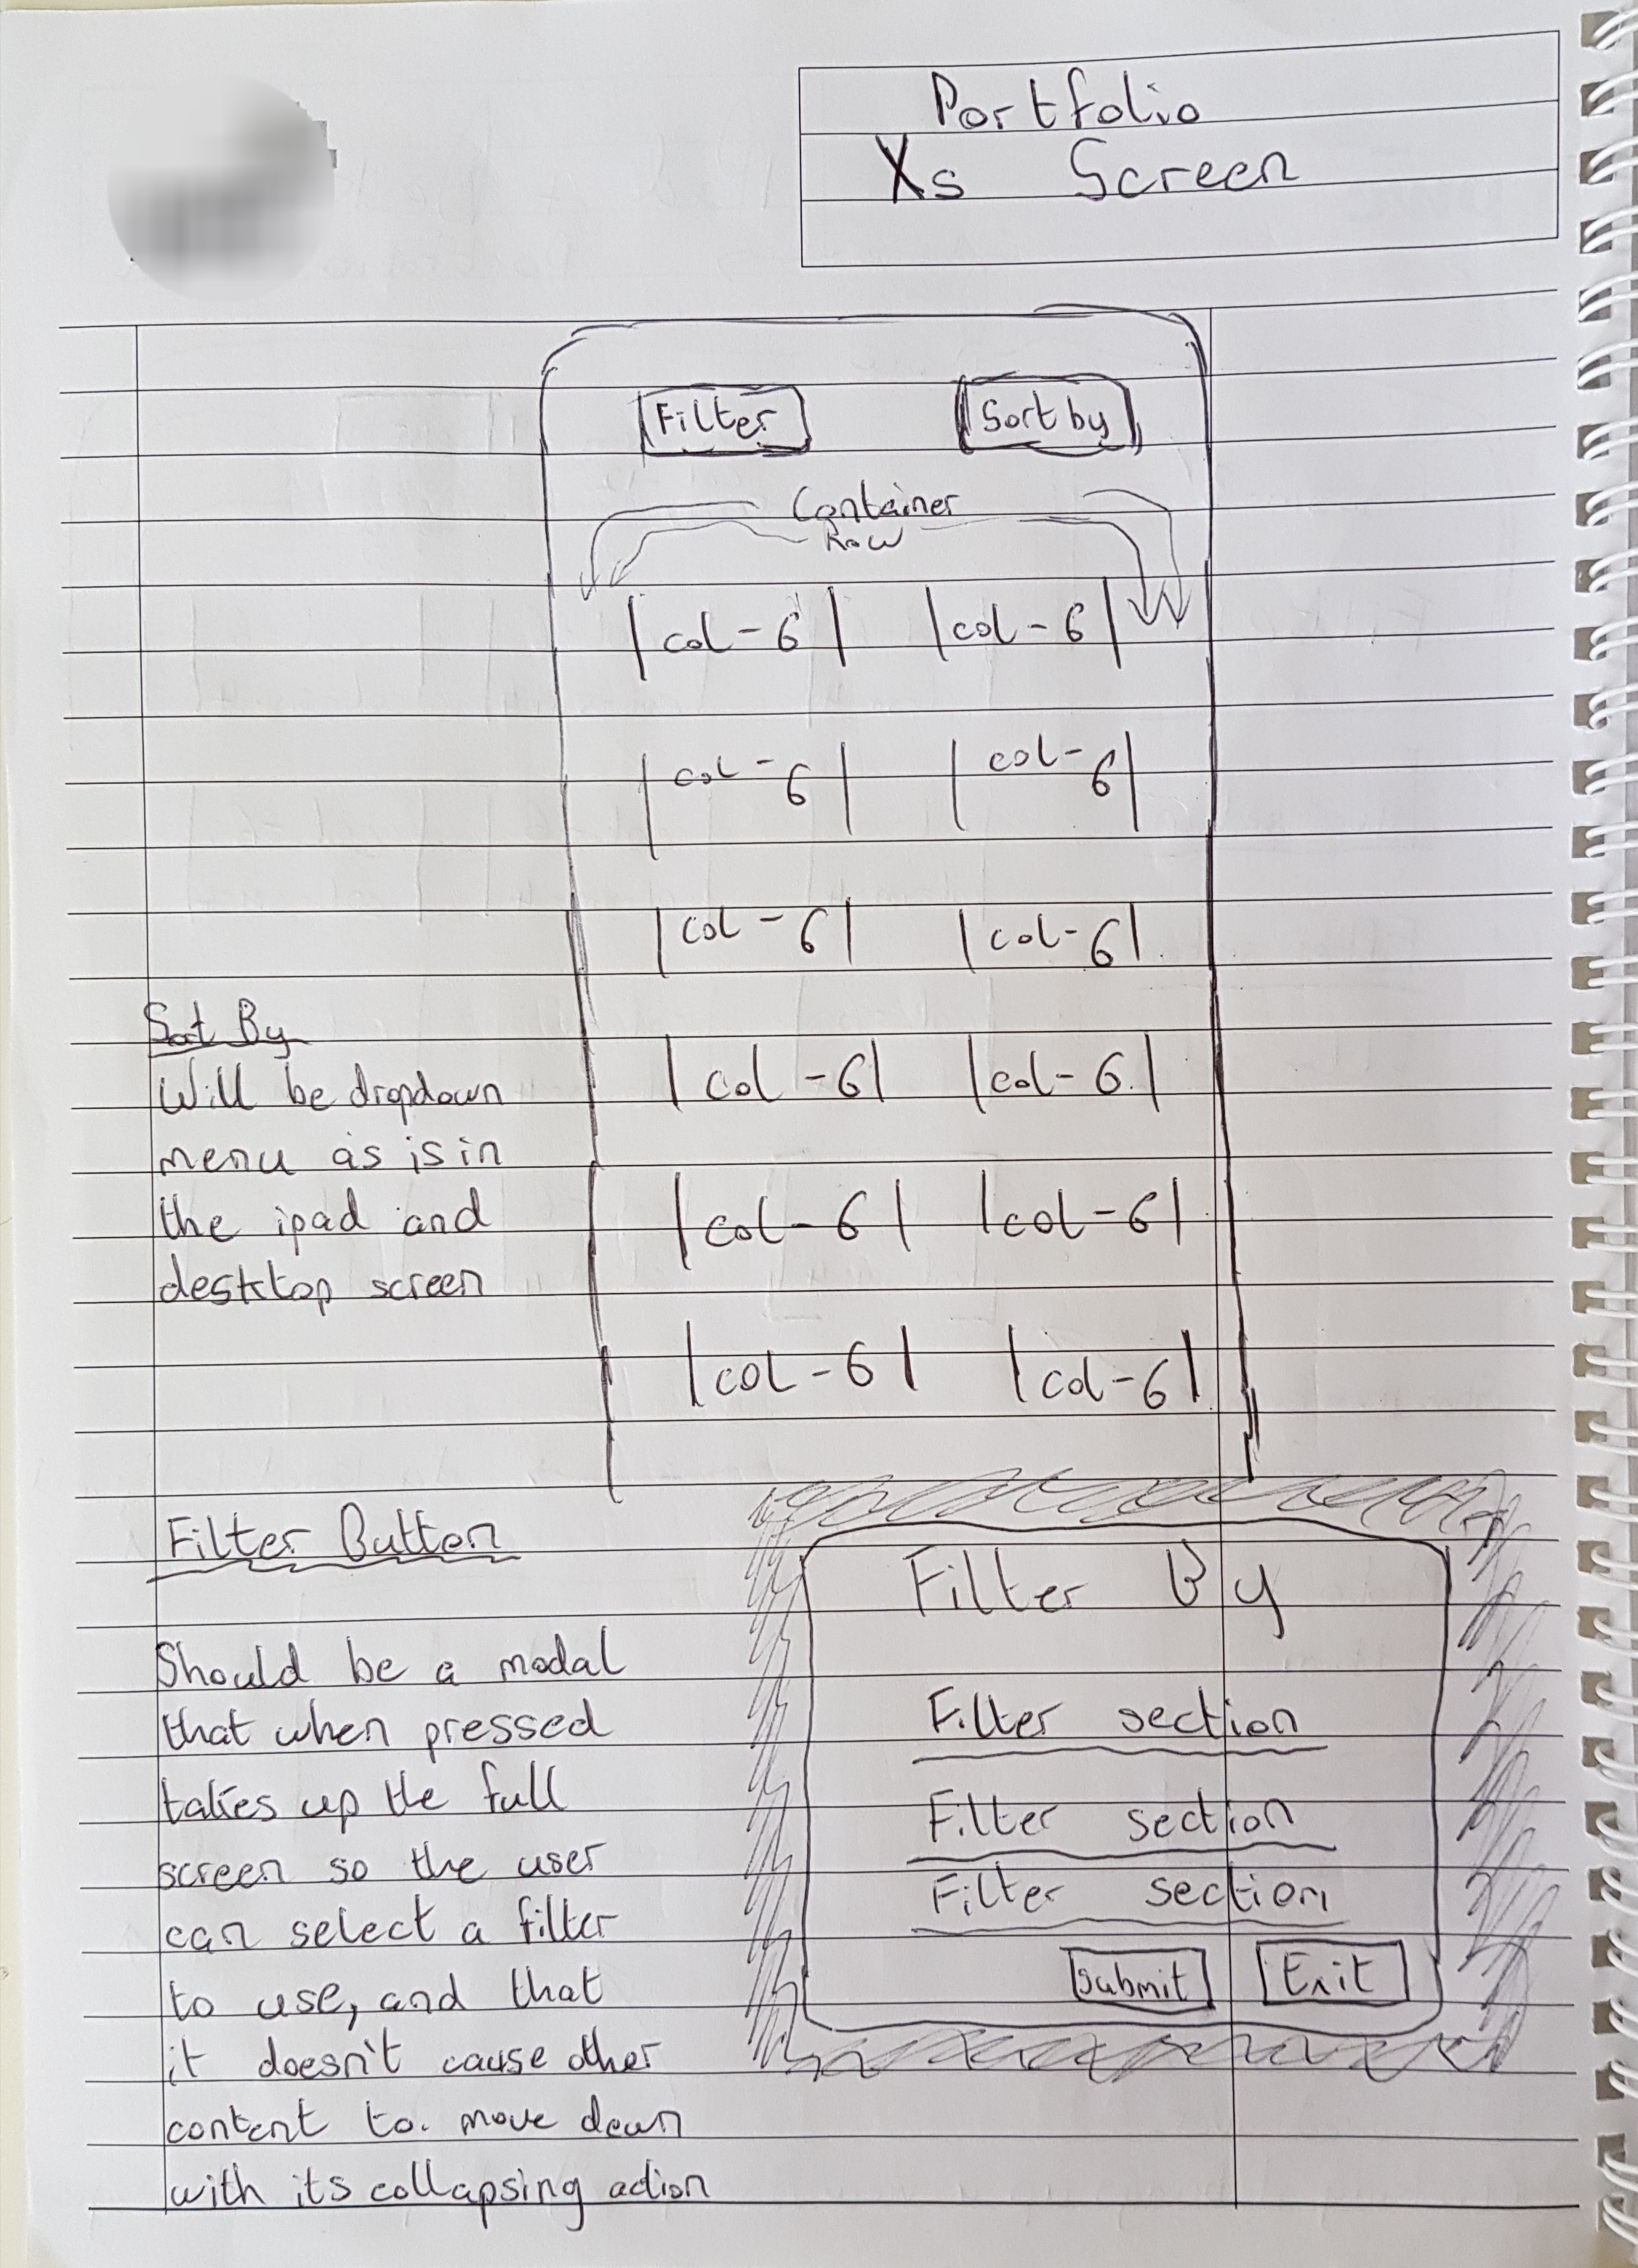 Portfolio
Xs Screen
Filter Sort by
Container
Row
|col-6| |col-6|
|col-6| |col-6|
|col-6| |col-6|
Sort By
Will be dropdown
menu as is in
the ipad and
desktop screen
|col-6| |col-6|
|col-6| |col-6|
|col-6| |col-6|
Filter Button
Should be a modal
that when pressed
takes up the full
screen so the user
can select a filter
to use, and that
it doesn't cause other
content to. move down
with its collapsing action
Filter By
Filter section
Filter section
Filter section
Submit Exit